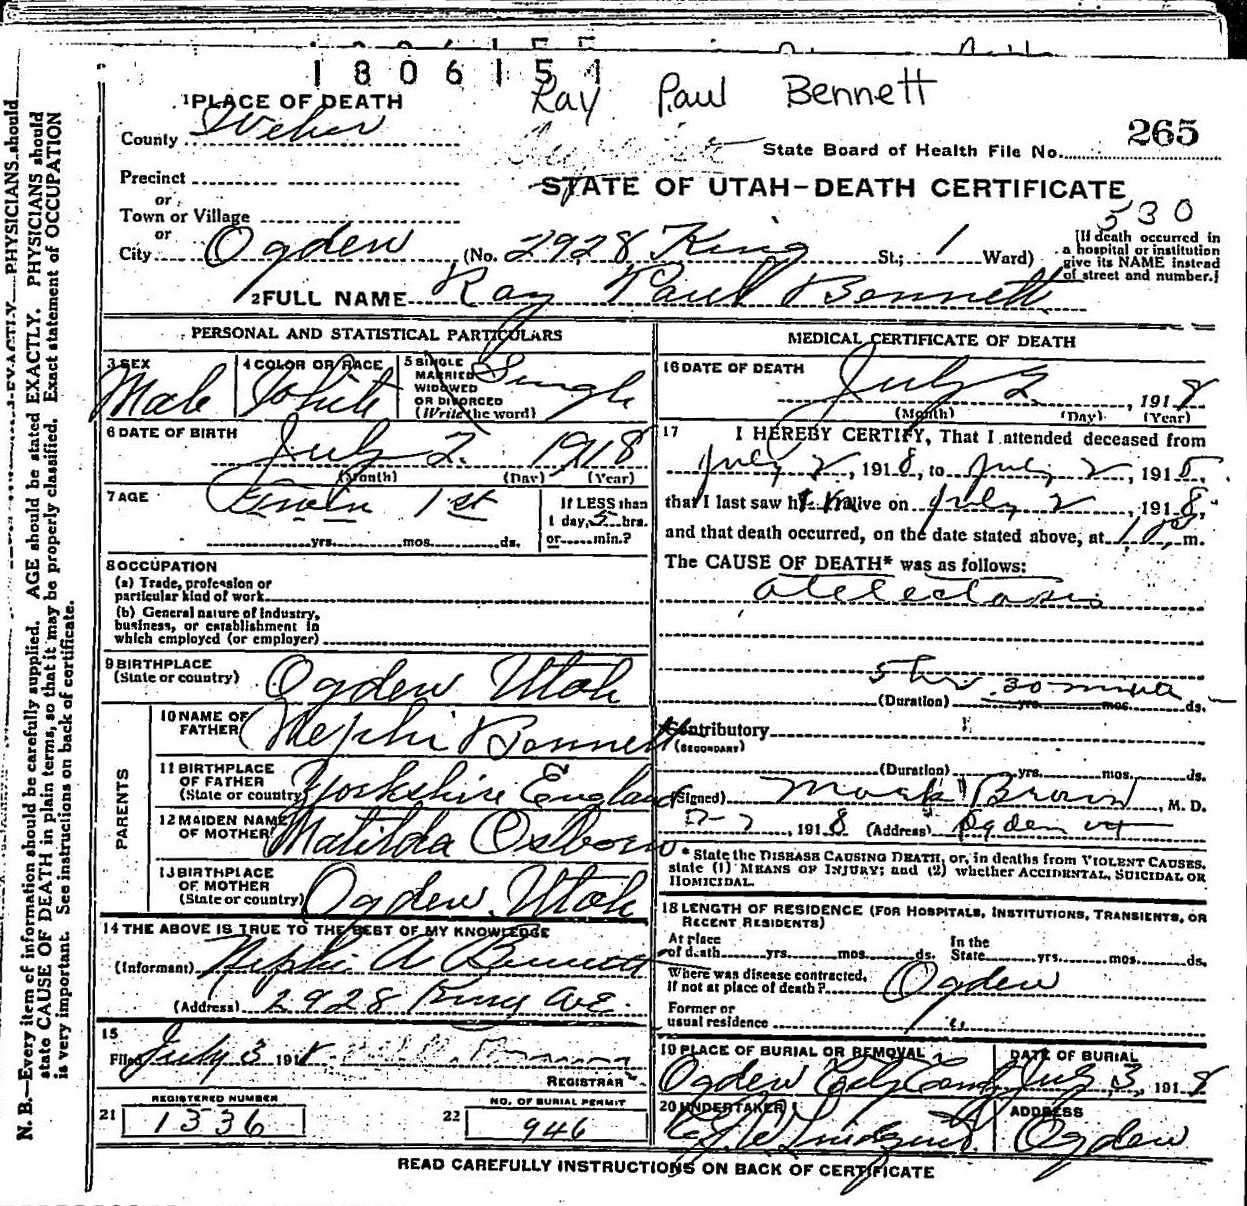 1806151
Ray Paul Bennett
1 PLACE OF DEATH
County Weber
State Board of Health File No. 265
Precinct
or
Town or Village
or
STATE OF UTAH—DEATH CERTIFICATE
530
City Ogden (No. 2928 King St.; 1 Ward)
[If death occurred in
a hospital or institution
give its NAME instead
of street and number.]
2 FULL NAME Ray Paul Bennett
PERSONAL AND STATISTICAL PARTICULARS
3 SEX
Male
4 COLOR OR RACE
White
5 SINGLE
MARRIED
WIDOWED
OR DIVORCED
(Write the word)
Single
6 DATE OF BIRTH
July 2 1918
(Month) (Day) (Year)
7 AGE
Twin 1st
yrs. mos. ds.
If LESS than
1 day, 5 hrs.
or min.?
8 OCCUPATION
(a) Trade, profession or
particular kind of work
(b) General nature of industry,
business, or establishment in
which employed (or employer)
9 BIRTHPLACE
(State or country)
Ogden Utah
PARENTS
10 NAME OF
FATHER
Nephi Bennett
11 BIRTHPLACE
OF FATHER
(State or country)
Yorkshire England
12 MAIDEN NAME
OF MOTHER
Matilda Osborn
13 BIRTHPLACE
OF MOTHER
(State or country)
Ogden Utah
14 THE ABOVE IS TRUE TO THE BEST OF MY KNOWLEDGE
(Informant) Nephi A Bennett
(Address) 2928 King Ave.
15
Filed July 3 1918
REGISTRAR
21 REGISTERED NUMBER
1336
22 NO. OF BURIAL PERMIT
946
MEDICAL CERTIFICATE OF DEATH
16 DATE OF DEATH
July 2, 1918
(Month) (Day) (Year)
17 I HEREBY CERTIFY, That I attended deceased from
July 2, 1918, to July 2, 1918,
that I last saw him alive on July 2, 1918,
and that death occurred, on the date stated above, at m.
The CAUSE OF DEATH* was as follows:
atelectasis
5 hrs 30 minuts
(Duration) yrs. mos. ds.
Contributory
(SECONDARY)
(Duration) yrs. mos. ds.
(Signed) Mark Brown, M. D.
7-2, 1918 (Address) Ogden ut
* State the DISEASE CAUSING DEATH, or, in deaths from VIOLENT CAUSES,
state (1) MEANS OF INJURY; and (2) whether ACCIDENTAL, SUICIDAL OR
HOMICIDAL.
18 LENGTH OF RESIDENCE (FOR HOSPITALS, INSTITUTIONS, TRANSIENTS, OR
RECENT RESIDENTS)
At place
of death yrs. mos. ds.
In the
State yrs. mos. ds.
Where was disease contracted,
if not at place of death? Ogden
Former or
usual residence
19 PLACE OF BURIAL OR REMOVAL
Ogden City Cem
DATE OF BURIAL
July 3, 1918
20 UNDERTAKER
Lindquist
ADDRESS
Ogden
READ CAREFULLY INSTRUCTIONS ON BACK OF CERTIFICATE
N. B.—Every item of information should be carefully supplied. AGE should be stated EXACTLY. PHYSICIANS should
state CAUSE OF DEATH in plain terms, so that it may be properly classified. Exact statement of OCCUPATION
is very important. See instructions on back of certificate.